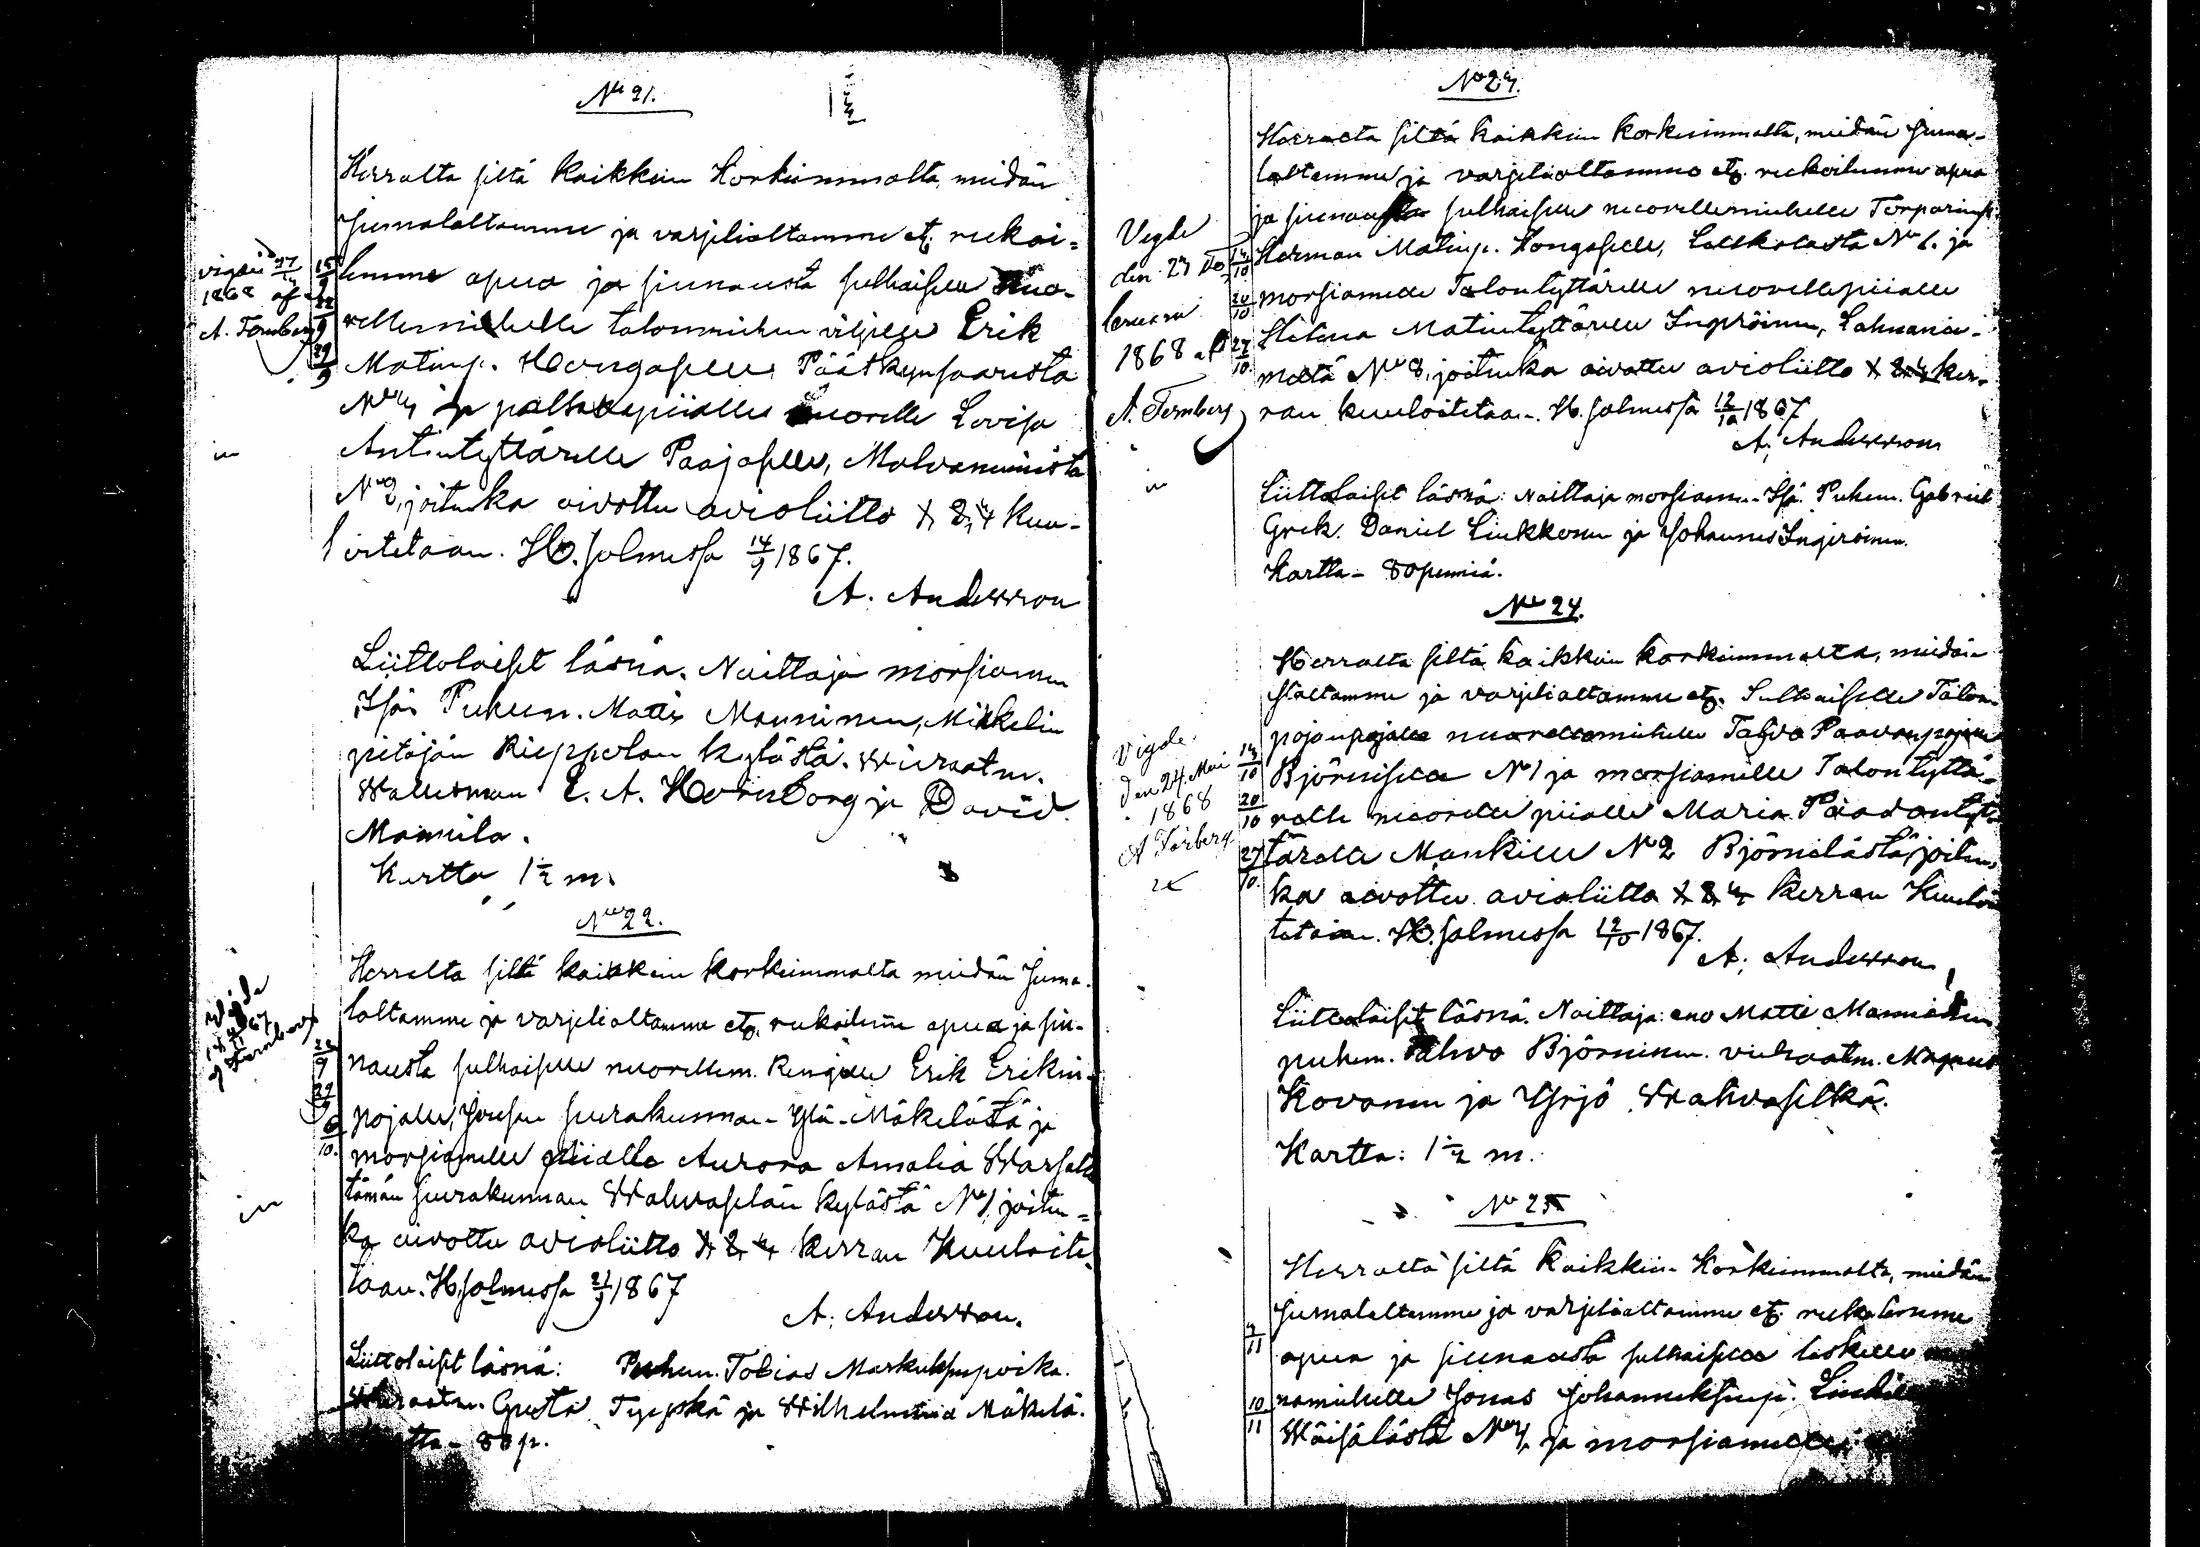 No 21.
Herralta siltä kaikkein Korkeimmalta, meidän
Jumalaltamme ja varjelialtamme etc. rukoi-
lemme apua ja siunausta sulhaiselle Nuo-
rellemiehelle talonmiehen viljelle Erik
Matinp. Hongaselle, Pääskynsaaresta
No 4 ja palkkapiialle nuorelle Lovisa
Antintyttärelle Paajaselle, Malvaniemistä
No 2, joitenka aivottu avioliitto 1, 2, 4 kuu-
loitetaan. H.Solmessa 14/9 1867.
A. Andersson
Liittolaiset läsnä. Naittaja morsiamen
Isä. Puhem. Matts Manninen, Mikkelin
pitäjän Rieppolan kylästä. Wieraatm.
Wallesman E. A. Hornborg ja David
Mannila.
Kartta 1 1/2 m.
vigde 27/4
1868 af
A. Fornberg
15/9
22/9
29/9
No 22.
Herralta siltä kaikkein korkeimmalta meidän Juma-
laltamme ja varjelialtamme etc. rukoilemme apua ja siu-
nausta sulhaiselle nuorellem. Rengille Erik Erikin-
pojalle, Jousen seurakunnan Ylä-Mäkelästä ja
morsiamelle piialle Aurora Amalia Warsalle
tämän seurakunnan Wahvaselän kylästä No 1, joiten-
ka aivottu avioliitto 1 2 4 kerran Kuuloite-
taan. H.Solmessa 21/9 1867
A. Andersson.
Liittolaiset läsnä: Puhem. Tobias Markuksenpoika.
Wieraatm. Gusta Tyyskä ja Wilhelmina Mäkelä.
80 p.
22/9
29/9
6/10.
No 24.
Herralta siltä kaikkein korkeimmalta, meidän Juma-
laltamme ja varjelialtamme etc. rukoilemme apua
ja siunausta sulhaiselle nuorellemiehelle Torparins.
Herman Matinp. Hongaselle, Lallkolasta No 6. ja
morsiamelle Talontyttärelle nuorellepiialle
Helena Matintyttärelle Ingeröinen, Lahnanie-
meltä No 8, joitenka aivottu avioliitto 1 2 4 ker-
ran kuuloitetaan. H.Solmessa 12/10 1867
A. Andersson
Liittolaiset läsnä: Naittaja morsiamen Isä. Puhem. Gabriel
Grek. Daniel Liukkonen ja Johannes Ingeröinen.
Kartta - 80 penniä.
Vigde
den 27 De
cember
1868 af
A. Fornberg
13/10
20/10
27/10.
No 24.
Herralta siltä kaikkein korkeimmalta, meidän
ltaltamme ja varjelialtamme etc. Sulhaiselle Talon-
pojanpojalle nuorellemiehelle Tahvo Paavonpojalle
Björniselle No 1 ja morsiamelle Talontyttä-
relle nuorelle piialle Maria Paavontyt-
tärelle Mankille No 2 Björnilästä, joiten-
ka aivottu avioliitto 1 2 4 kerran Kuuloi
tetaan. H.Solmessa 12/10 1867.
A. Andersson
Liittolaiset läsnä. Naittaja: eno Matti Mannisten
puhem. Tahvo Björninen. vieraatm. Magnus
Kovanen ja Yrjö Wahvaselkä.
Kartta: 1 1/2 m.
Vigde
den 24. Mai
1868
A Forberg
13/10
20/10
27/10.
No 25
Herralta siltä kaikkein Korkeimmalta, meidän
Jumalaltamme ja varjelialtamme etc. rukoilemme
apua ja siunausta sulhaiselle leskelle
namiehelle Jonas Johanneksenp.
Wäisälästä No 4, ja morsiamelle
3/11
10/11